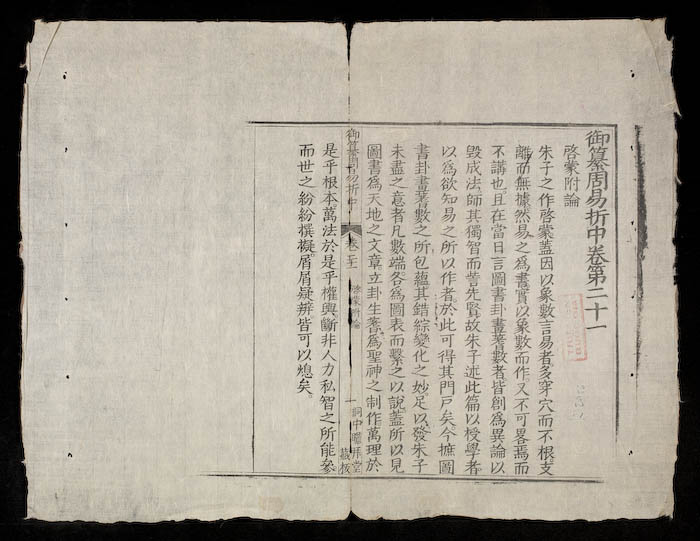 御纂周易折中卷第二十一
啓蒙附論
朱子之作啓蒙蓋因以象數言易者多穿穴而不根支
離而無據然易之爲書實以象數而作又不可畧焉而
不講也且在當日言圖書卦畫蓍數者皆創爲異論以
毀成法師其獨智而訾先賢故朱子述此篇以授學者
以爲欲知易之所以作者於此可得其門戶矣今摭圖
書卦畫蓍數之所包蘊其錯綜變化之妙足以發朱子
未盡之意者凡數端各爲圖表而繫之以說蓋所以見
圖書爲天地之文章立卦生蓍爲聖神之制作萬理於
御纂周易折中 卷二十一 啓蒙附論 一
是乎根本萬法於是乎權輿斷非人力私智之所能參
而世之紛紛撰擬屑屑疑辨皆可以熄矣